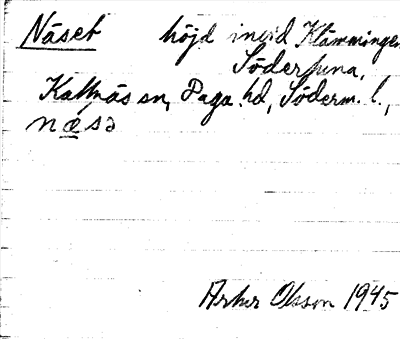 Näset höjd invid Klämmingen,
Södertuna,
Kattnäs sn, Daga hd, Söderm. l.,
næ̀sə
Artur Olsson 1945